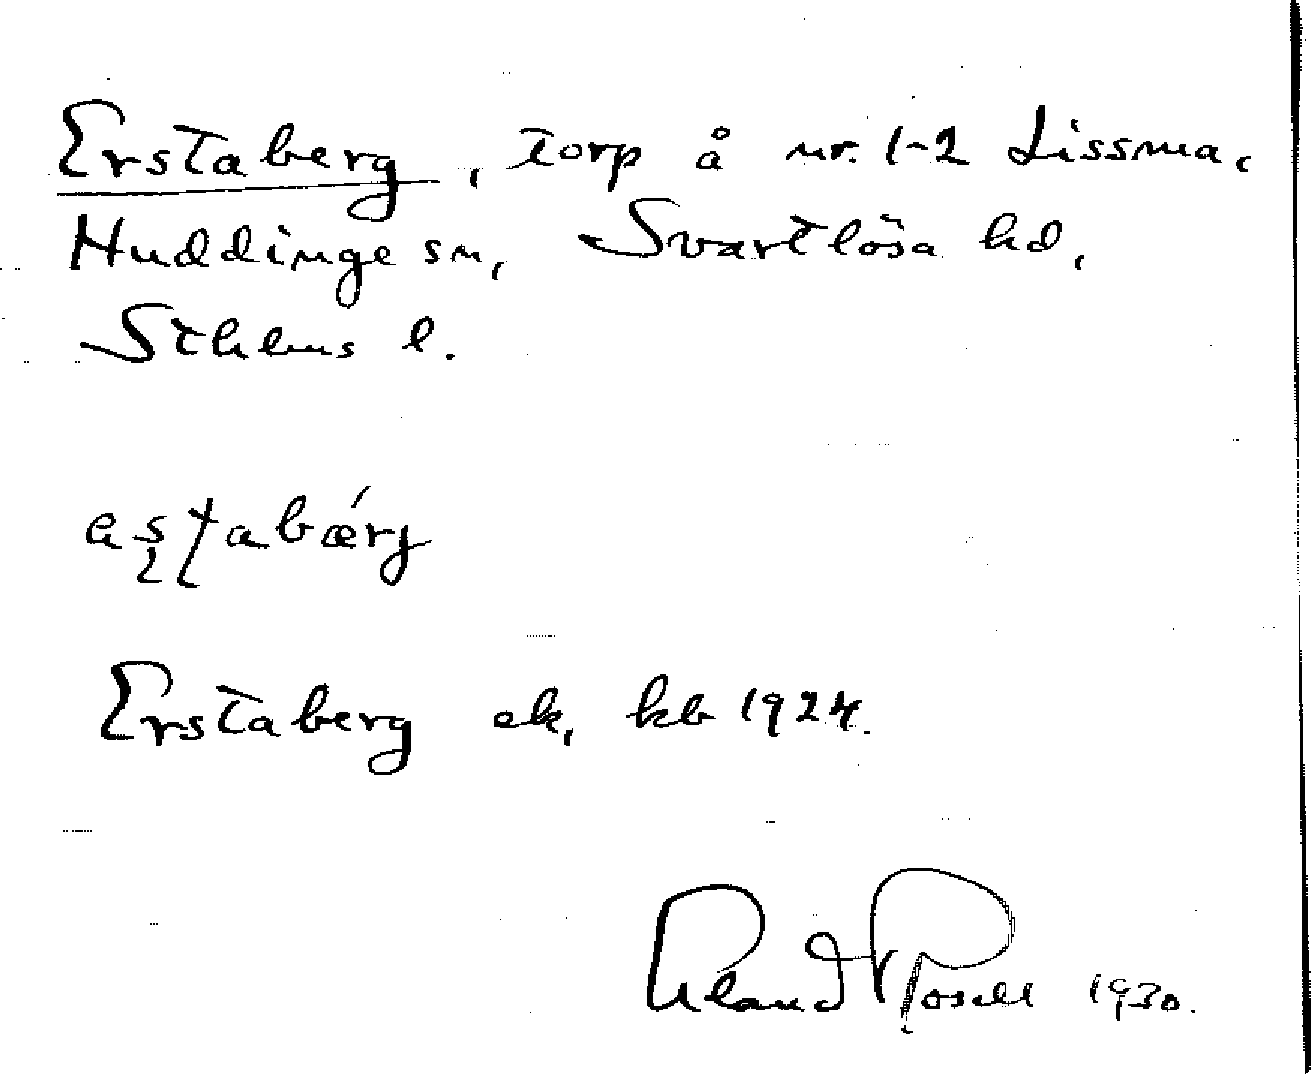 Erstaberg, torp å nr. 1-2 Lissma,
Huddinge sn, Svartlösa hd,
Sthlms l.
Erstaberg ek, kb 1924.
Erland Rosell 1930.